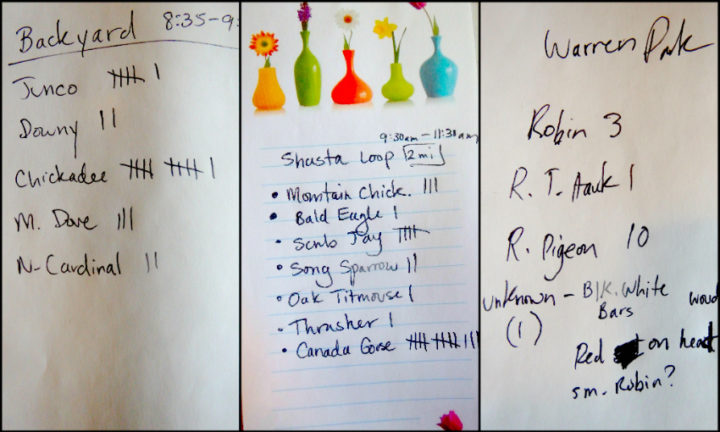 Backyard 8:35-9:
Junco 卌 |
Downy ||
Chickadee 卌 卌 |
M. Dove |||
N. Cardinal ||
9:30am - 11:30am
Shasta Loop 2 mi
• Mountain Chick. |||
• Bald Eagle |
• Scrub Jay 卌
• Song Sparrow ||
• Oak Titmouse |
• Thrasher |
• Canada Goose 卌 卌 |||
Warren Park
Robin 3
R. T. Hawk 1
R. Pigeon 10
unknown - Blk. White woud
(1) Bars
Red on head
sm. Robin?